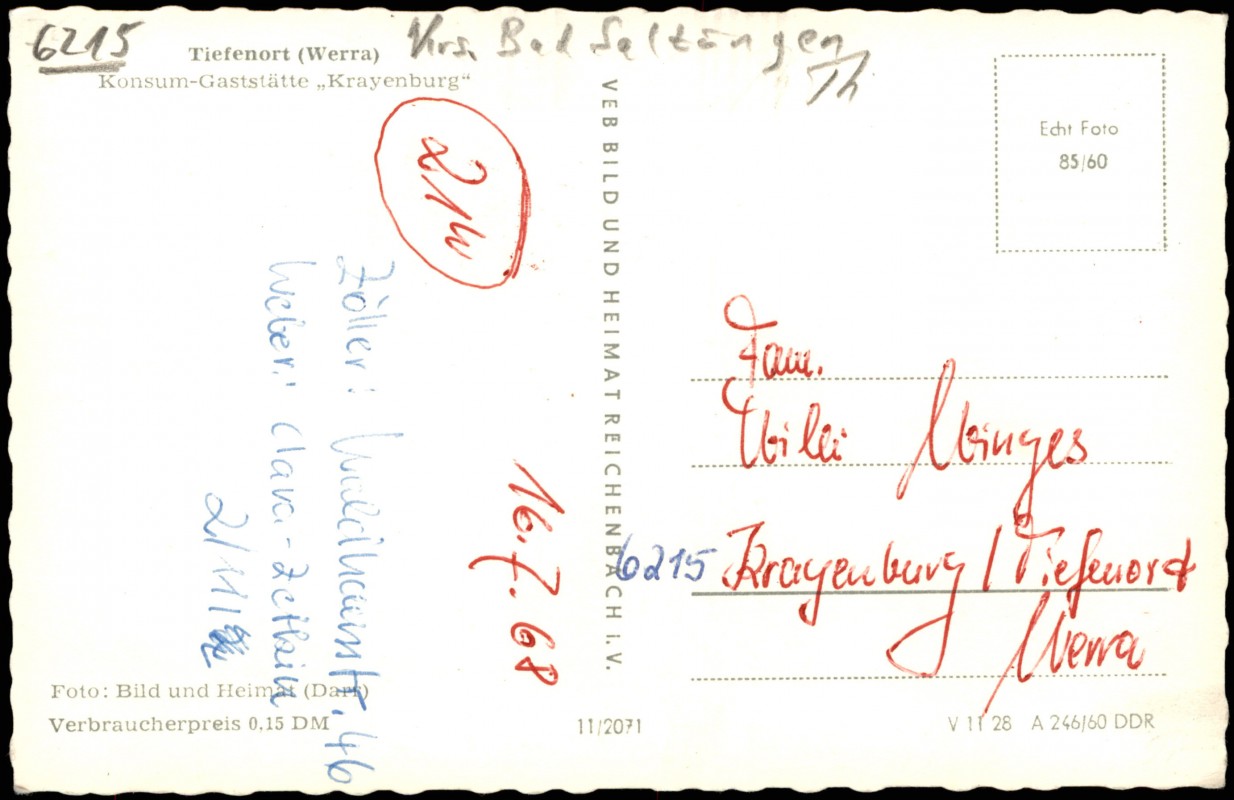 6215
Tiefenort (Werra)
Konsum-Gaststätte „Krayenburg“
Krs. Bad Salzungen
Th
Echt Foto
85/60
VEB BILD UND HEIMAT REICHENBACH i. V.
Zöller:
46
Weber: Clara-Zetkin
2/11/
16. 7. 68
Fam.
Willi Minges
6215 Krayenburg / Tiefenort
Werra
Foto: Bild und Heimat (Darr)
Verbraucherpreis 0,15 DM
11/2071
V 11 28 A 246/60 DDR